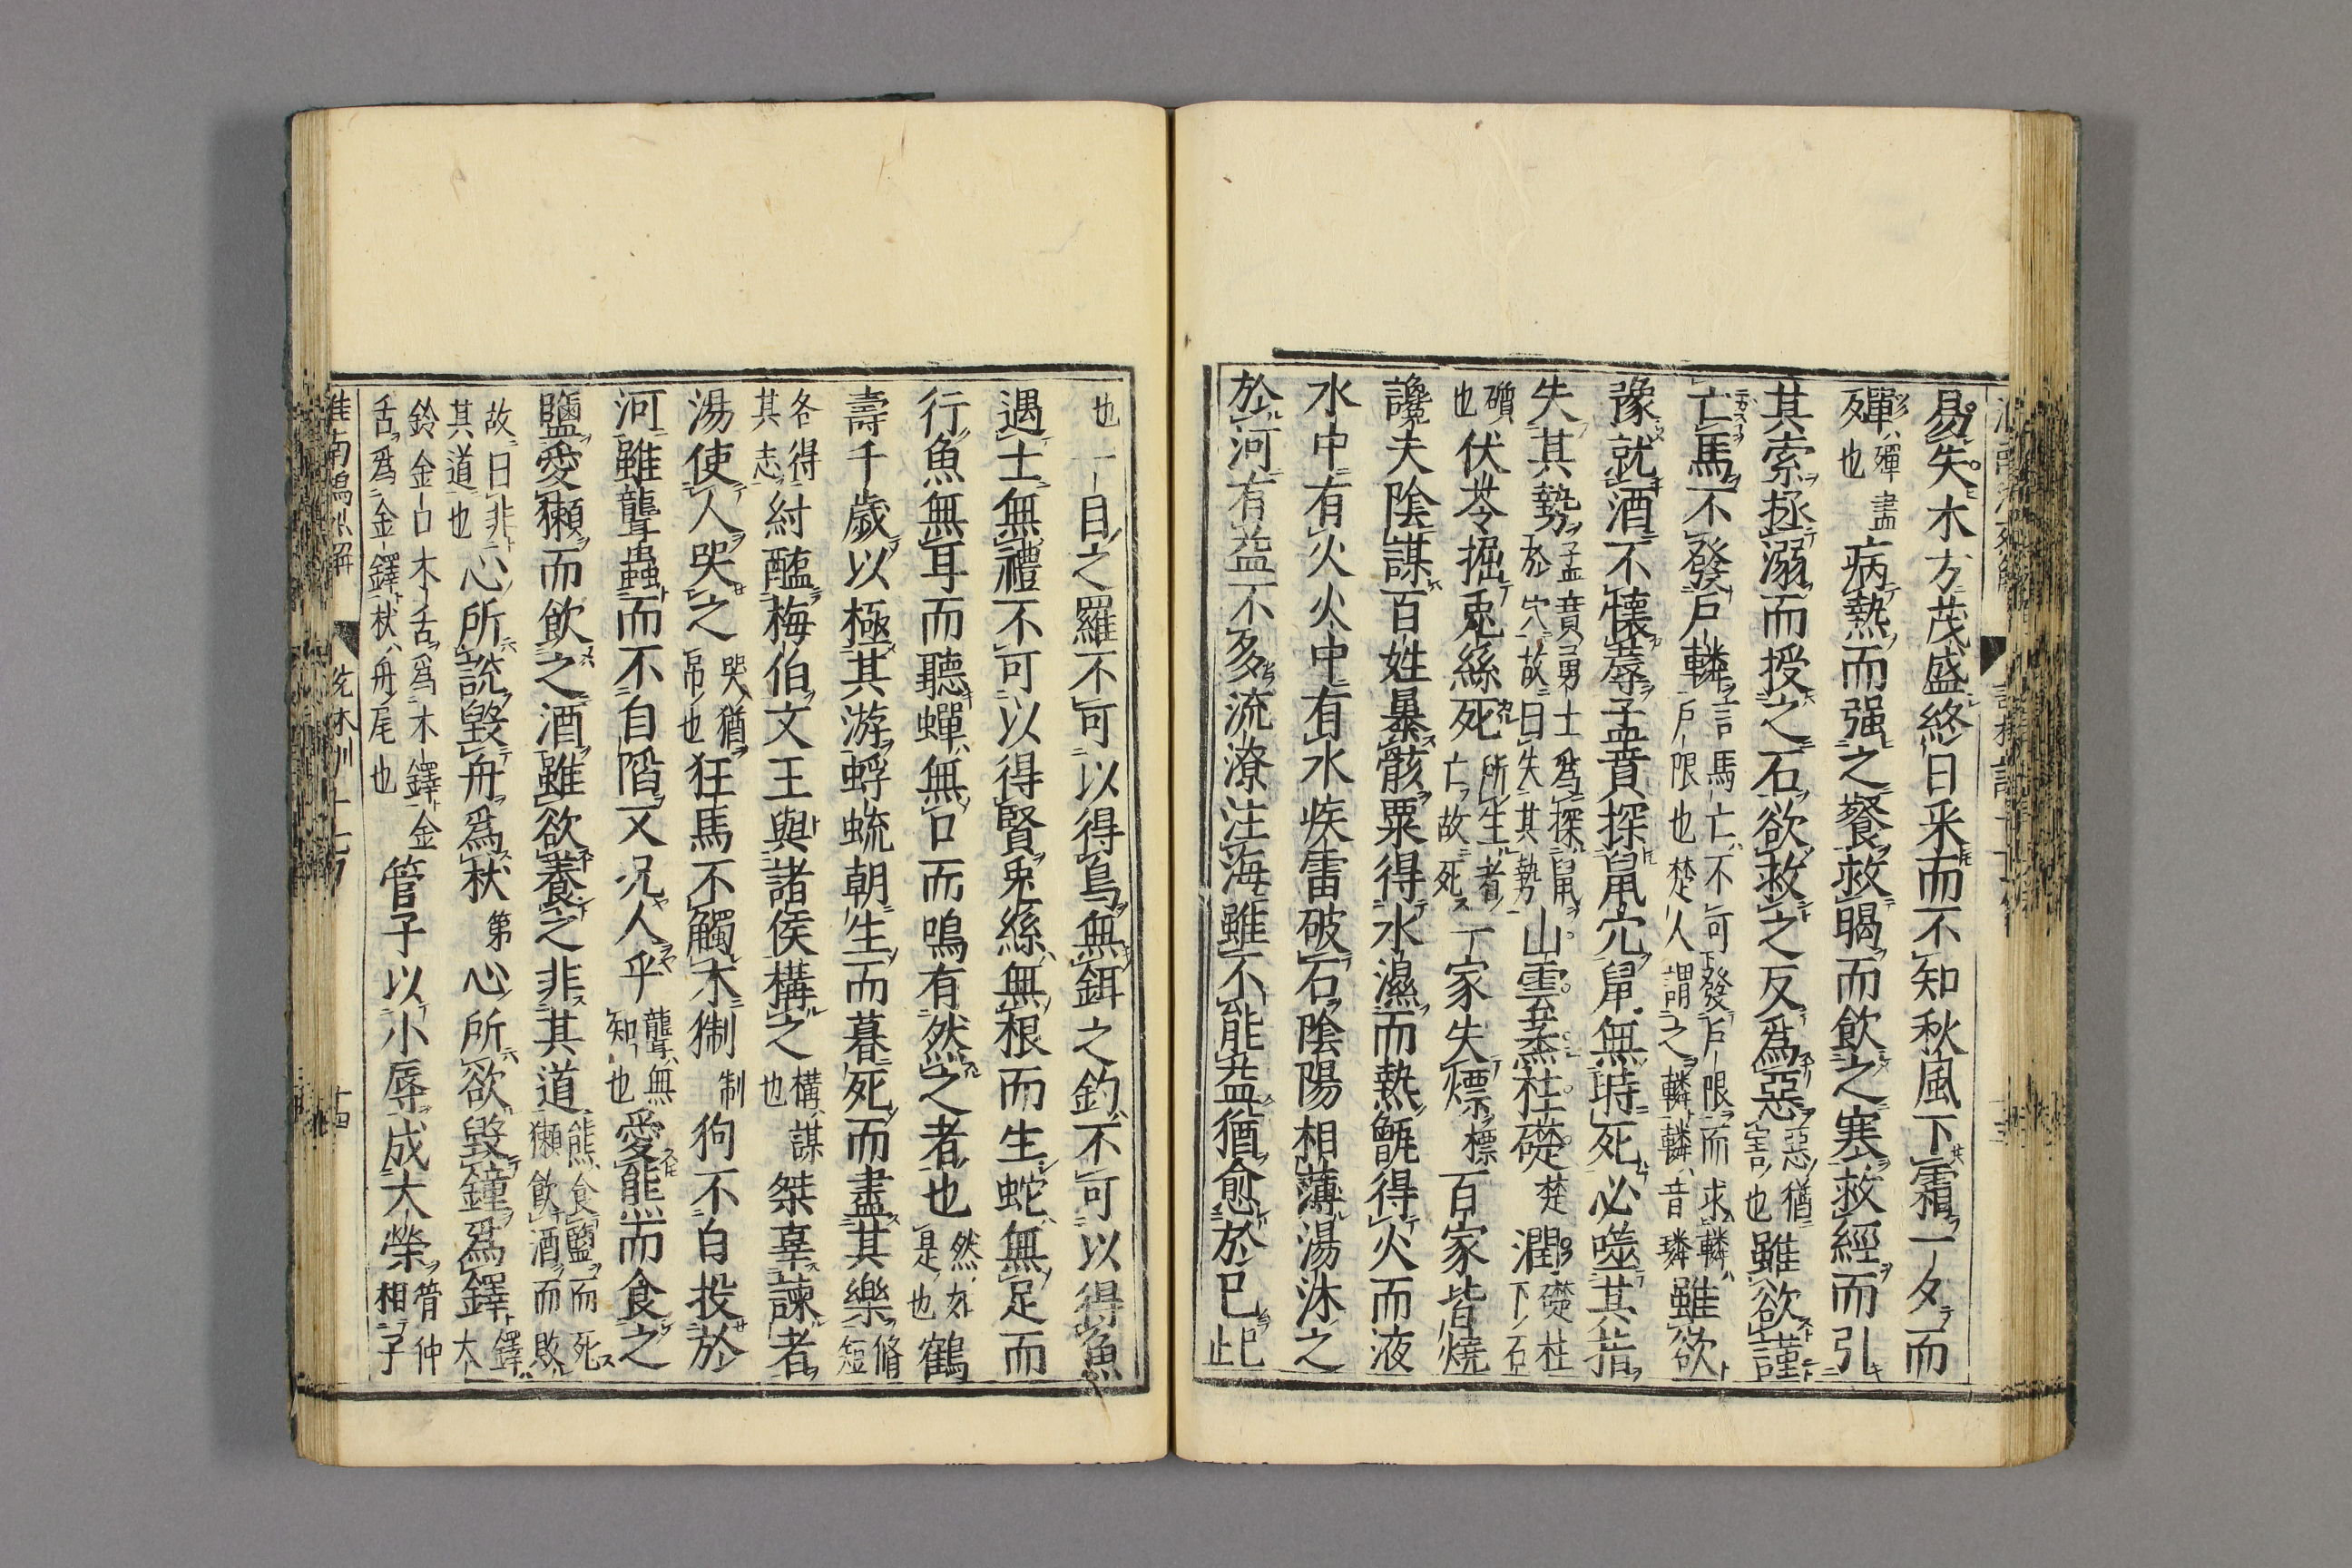 易失木方茂盛終日采而不知秋風下霜一夕而
殫殫盡也病熱而强之餐救暍而飲之寒救經而引
其索拯溺而授之石欲救之反爲惡惡猶害也雖欲謹
亡馬不發戶轔言馬亡不可發戶限而求轔戶限也楚人謂之轔轔音璘雖欲
豫就酒不懷蓐孟賁探鼠穴鼠無時死必噬其指
失其勢孟賁勇士爲探鼠於穴故曰失其勢山雲蒸柱礎楚潤礎柱下石
礩也伏苓掘兎絲死所生者亡故死一家失熛標百家皆燒
讒夫陰謀百姓暴骸粟得水濕而熱甑得火而液
水中有火火中有水疾雷破石陰陽相薄湯沐之
於河有益不多流潦注海雖不能益猶愈於已已止
也一目之羅不可以得鳥無餌之釣不可以得魚
遇士無禮不可以得賢兎絲無根而生蛇無足而
行魚無耳而聽蟬無口而鳴有然之者也然如是也鶴
壽千歲以極其游蜉蝣朝生而暮死而盡其樂脩短
各得其志紂醢梅伯文王與諸侯構之構謀也桀辜諫者
湯使人哭之哭猶弔也狂馬不觸木猘制狗不自投於
河雖聾蟲而不自陷又况人乎聾無知也愛熊而食之
鹽愛獺而飲之酒雖欲養之非其道熊食鹽而死獺飲酒而敗
故曰非其道也心所說毀舟爲杕第心所欲毀鐘爲鐸鐸大
鈴金口木舌爲木鐸金舌爲金鐸杕舟尾也管子以小辱成大榮管仲相子